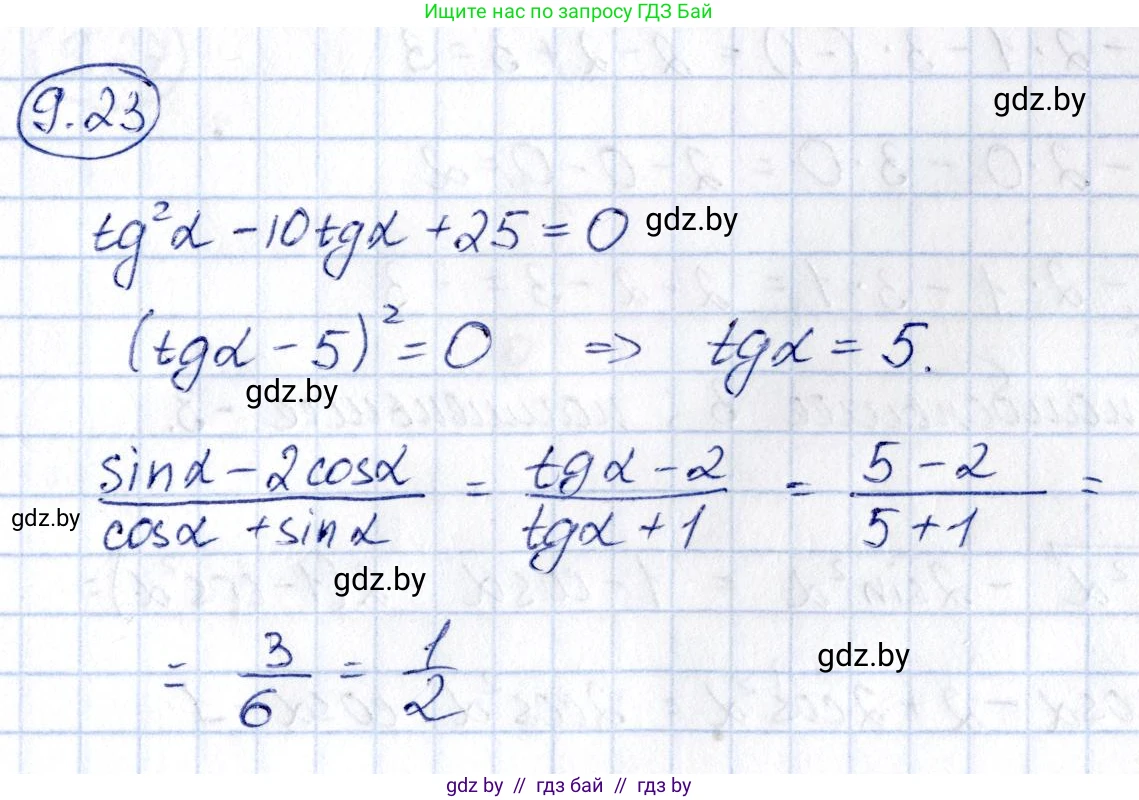 Ищите нас по запросу ГДЗ Бай
9.23
gdz.by
tg²α - 10tgα + 25 = 0 gdz.by
(tgα - 5)² = 0 ⇒ tgα = 5.
gdz.by
(sinα - 2cosα)/(cosα + sinα) = (tgα - 2)/(tgα + 1) = (5 - 2)/(5 + 1) =
gdz.by
gdz.by
= 3/6 = 1/2
gdz.by
gdz.by // гдз бай // гдз by